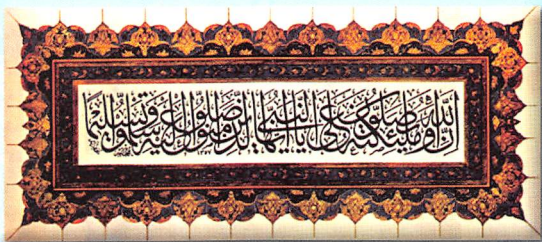 إِنَّ اللّٰهَ وَمَلَائِكَتَهُ يُصَلُّونَ عَلَى النَّبِيِّ يَا أَيُّهَا الَّذِينَ آمَنُوا صَلُّوا عَلَيْهِ وَسَلِّمُوا تَسْلِيمًا